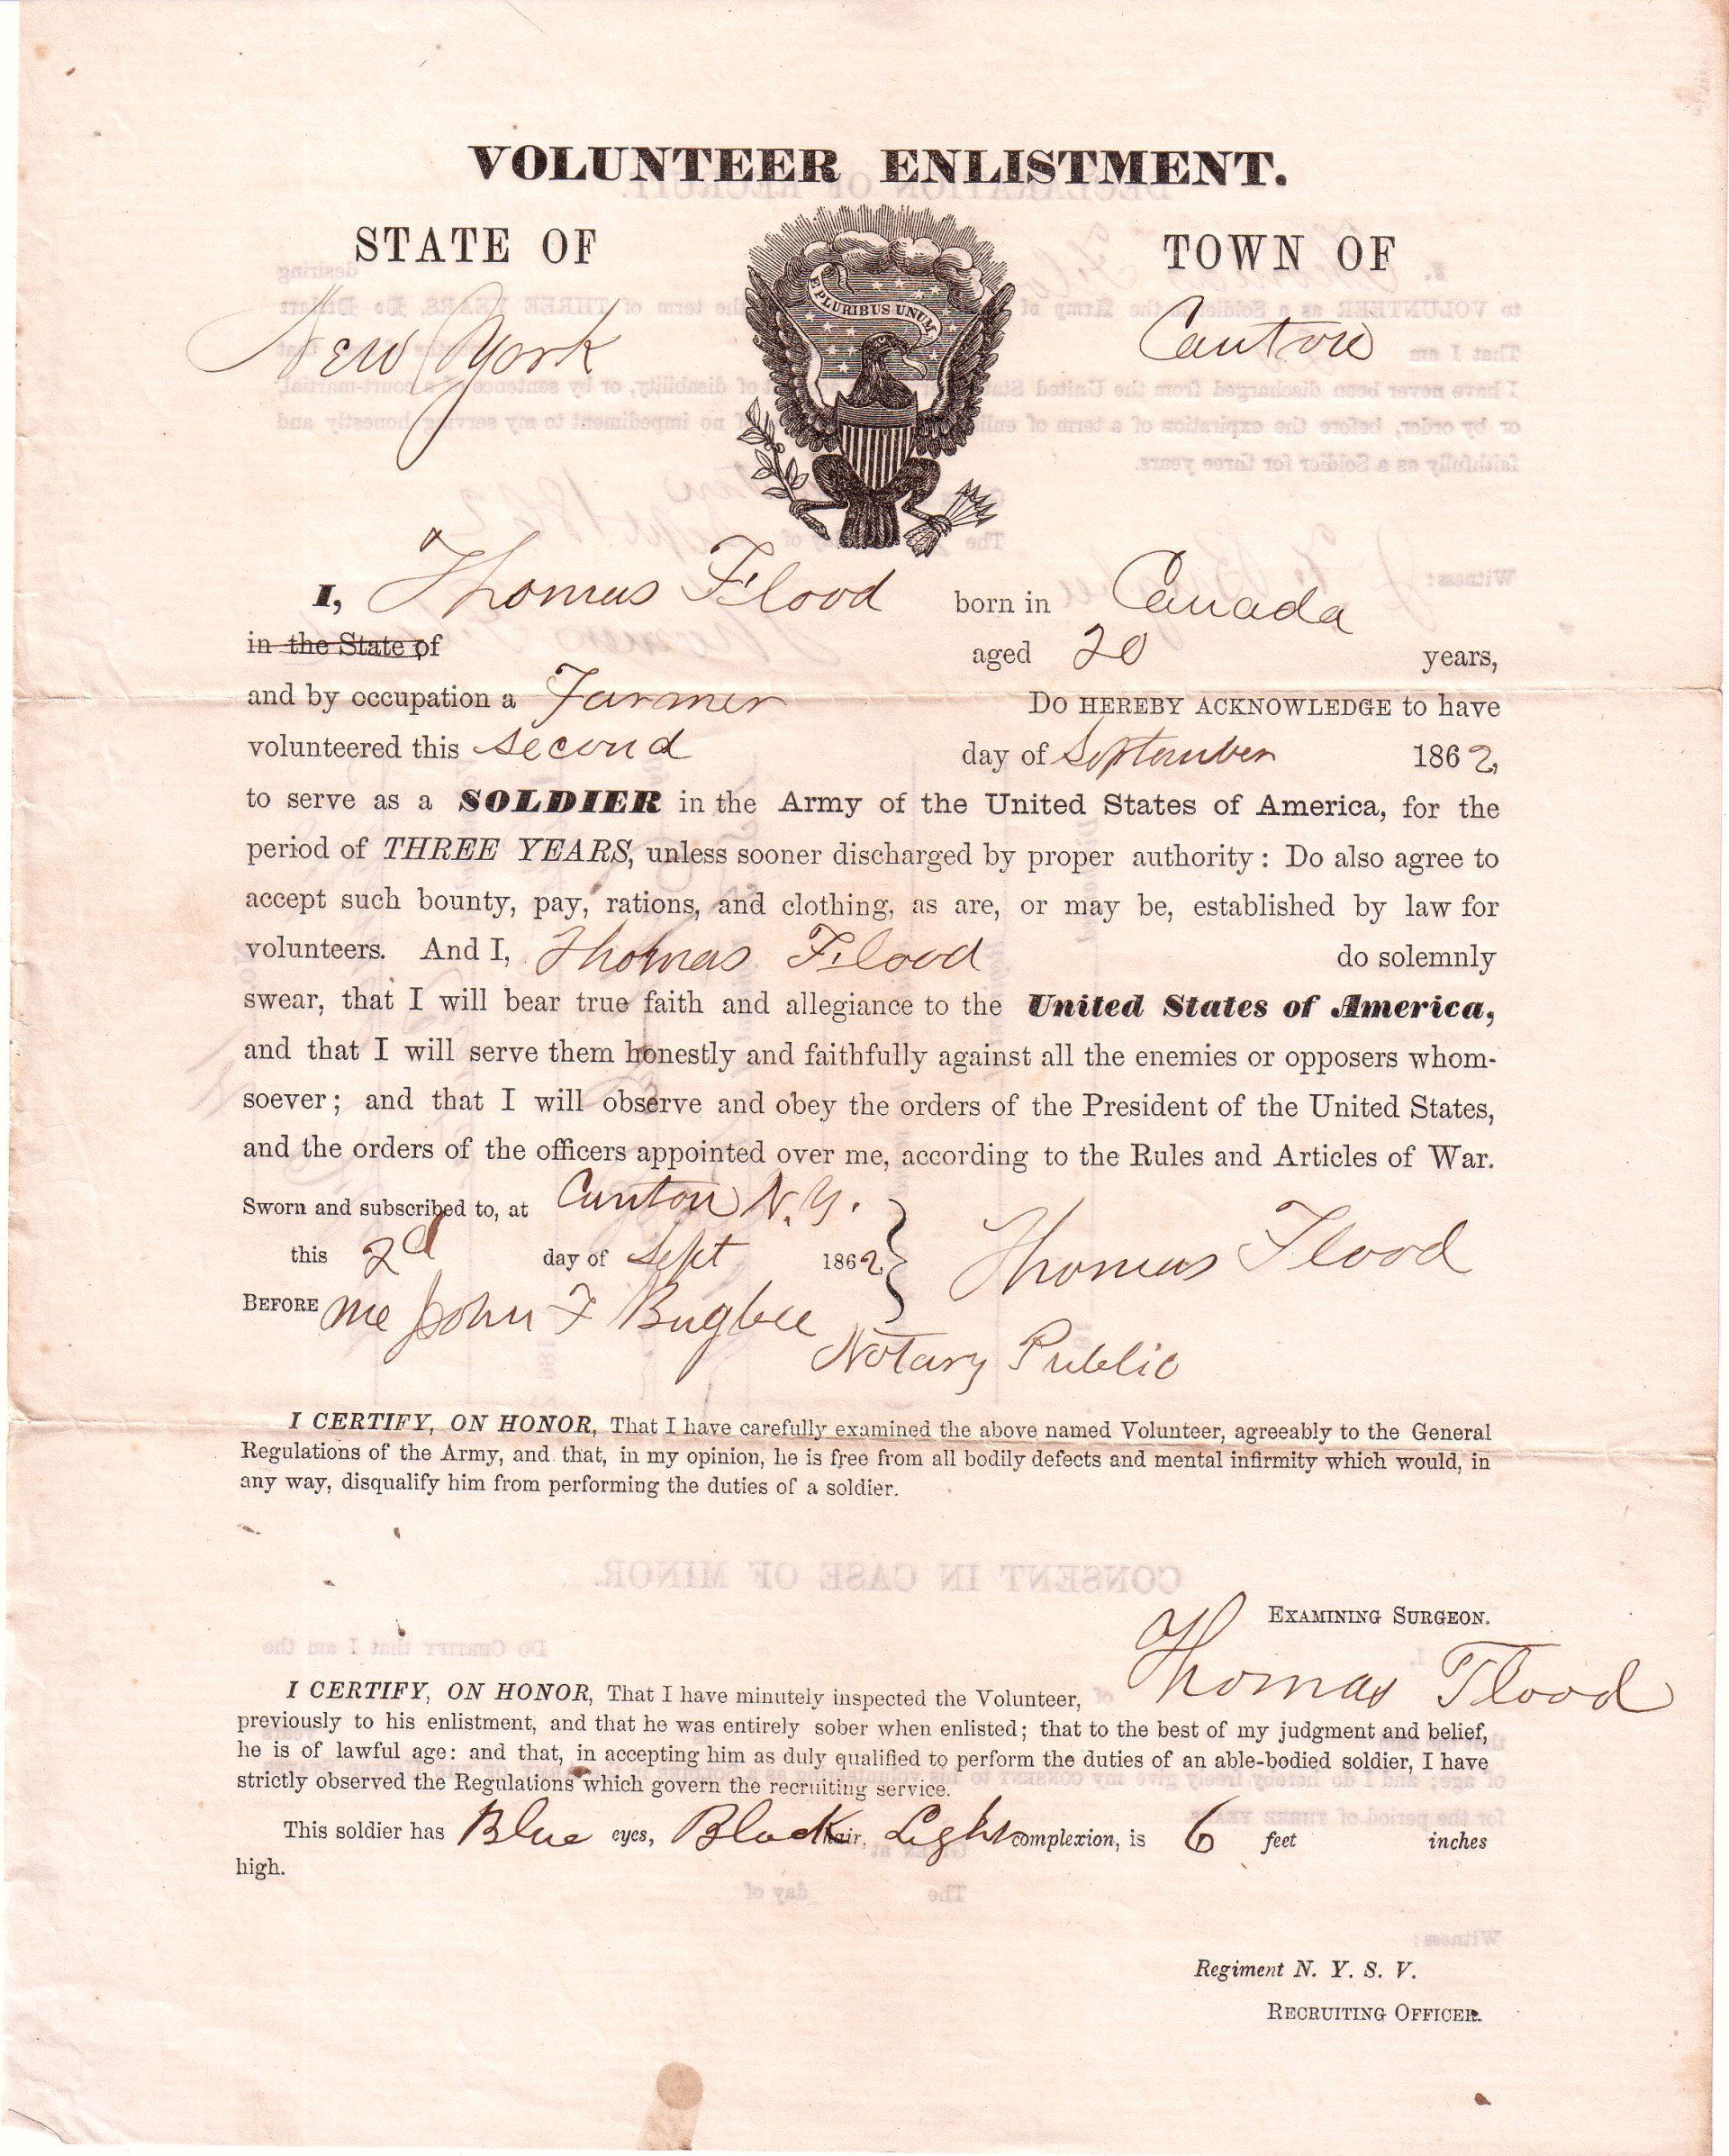 VOLUNTEER ENLISTMENT.
STATE OF
TOWN OF
E PLURIBUS UNUM
New York
Canton
I, Thomas Flood born in Canada
in the State of aged 20 years,
and by occupation a Farmer Do HEREBY ACKNOWLEDGE to have
volunteered this second day of September 1862,
to serve as a SOLDIER in the Army of the United States of America, for the
period of THREE YEARS, unless sooner discharged by proper authority: Do also agree to
accept such bounty, pay, rations, and clothing, as are, or may be, established by law for
volunteers. And I, Thomas Flood do solemnly
swear, that I will bear true faith and allegiance to the United States of America,
and that I will serve them honestly and faithfully against all the enemies or opposers whom-
soever; and that I will observe and obey the orders of the President of the United States,
and the orders of the officers appointed over me, according to the Rules and Articles of War.
Sworn and subscribed to, at Canton N.Y.
this 2d day of Sept 1862
Thomas Flood
BEFORE me John F Bugbee
Notary Public
I CERTIFY, ON HONOR, That I have carefully examined the above named Volunteer, agreeably to the General
Regulations of the Army, and that, in my opinion, he is free from all bodily defects and mental infirmity which would, in
any way, disqualify him from performing the duties of a soldier.
CONSENT IN CASE OF MINOR.
EXAMINING SURGEON.
I CERTIFY, ON HONOR, That I have minutely inspected the Volunteer, Thomas Flood
previously to his enlistment, and that he was entirely sober when enlisted; that to the best of my judgment and belief,
he is of lawful age: and that, in accepting him as duly qualified to perform the duties of an able-bodied soldier, I have
strictly observed the Regulations which govern the recruiting service.
This soldier has Blue eyes, Black hair, Light complexion, is 6 feet inches
high.
Regiment N. Y. S. V.
RECRUITING OFFICER.